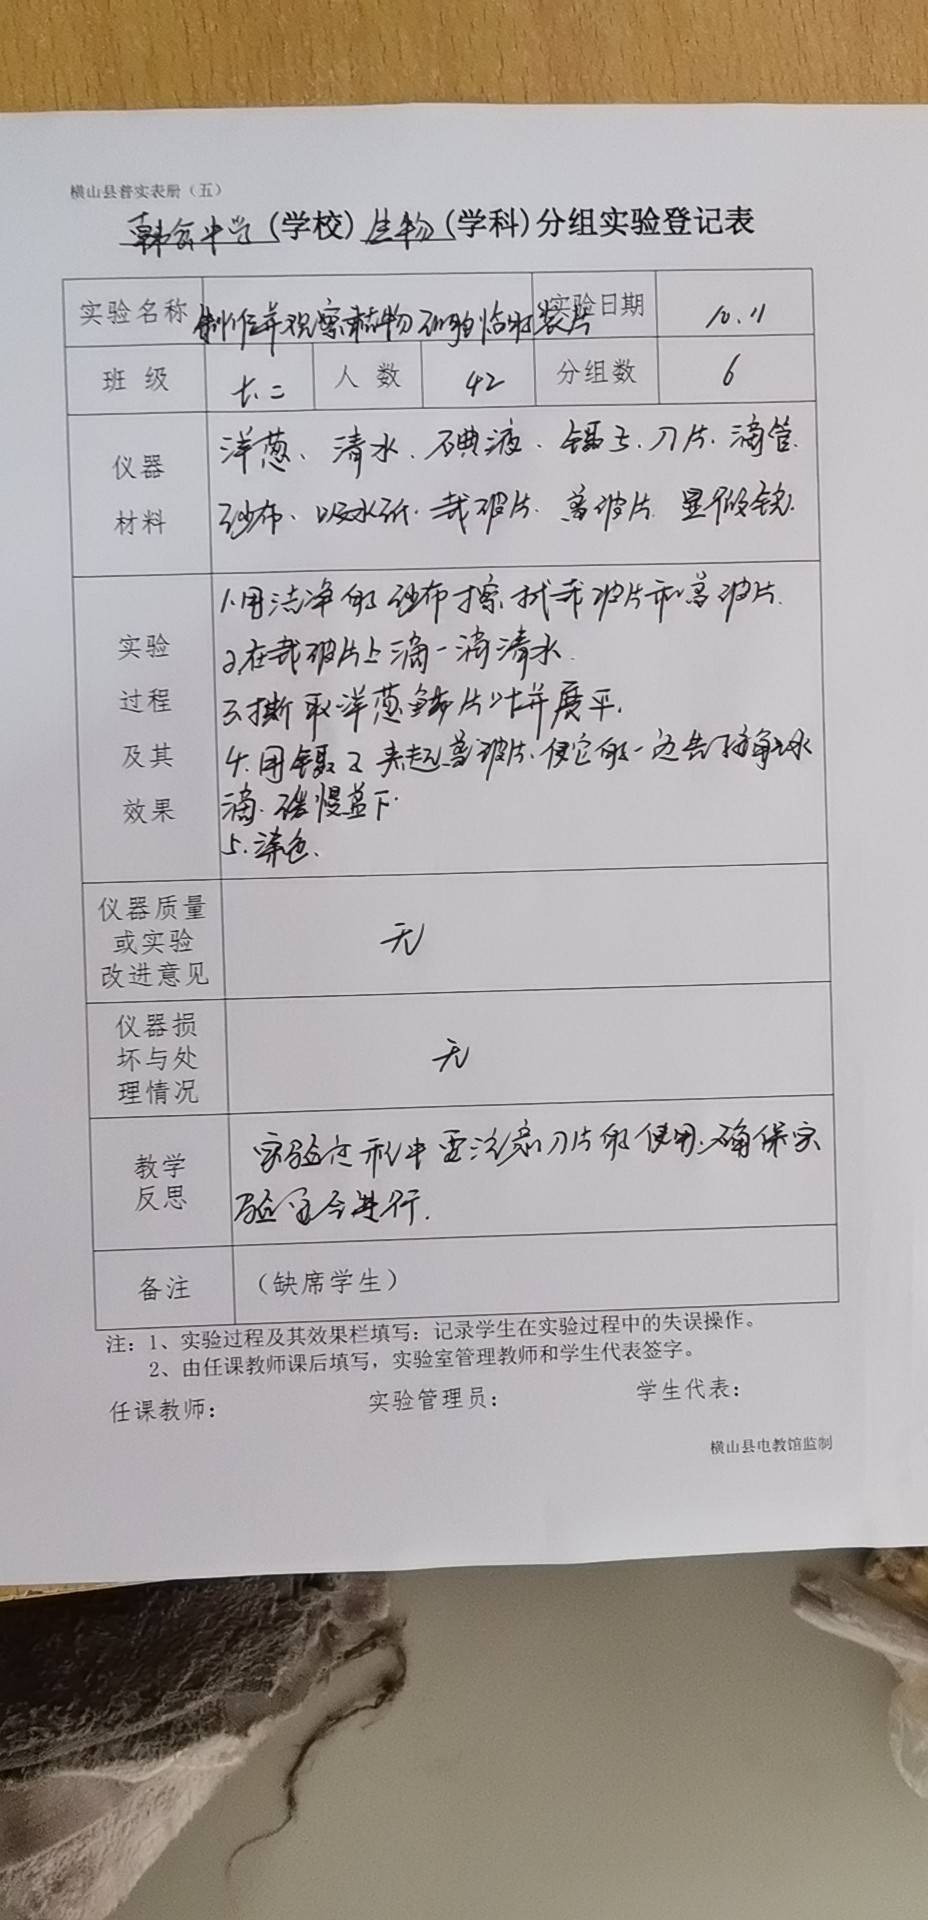 横山县普实表册（五）
韩岔中学(学校)生物(学科)分组实验登记表
实验名称 制作并观察植物细胞临时装片 实验日期 10.11
班 级 七.二 人 数 42 分组数 6
仪器
材料
洋葱、清水、碘液、镊子、刀片、滴管.
纱布、吸水纸、载玻片、盖玻片、显微镜.
实验
过程
及其
效果
1.用洁净的纱布擦拭载玻片和盖玻片.
2.在载玻片上滴一滴清水.
3.撕取洋葱鳞片 并展平.
4.用镊子夹起盖玻片,使它的一边先接触水
滴,缓慢盖下.
5.染色.
仪器质量
或实验
改进意见
无
仪器损
坏与处
理情况
无
教学
反思
实验过程中要注意刀片的使用,确保实
验安全进行.
备注 （缺席学生）
注：1、实验过程及其效果栏填写：记录学生在实验过程中的失误操作。
2、由任课教师课后填写，实验室管理教师和学生代表签字。
任课教师： 实验管理员： 学生代表：
横山县电教馆监制